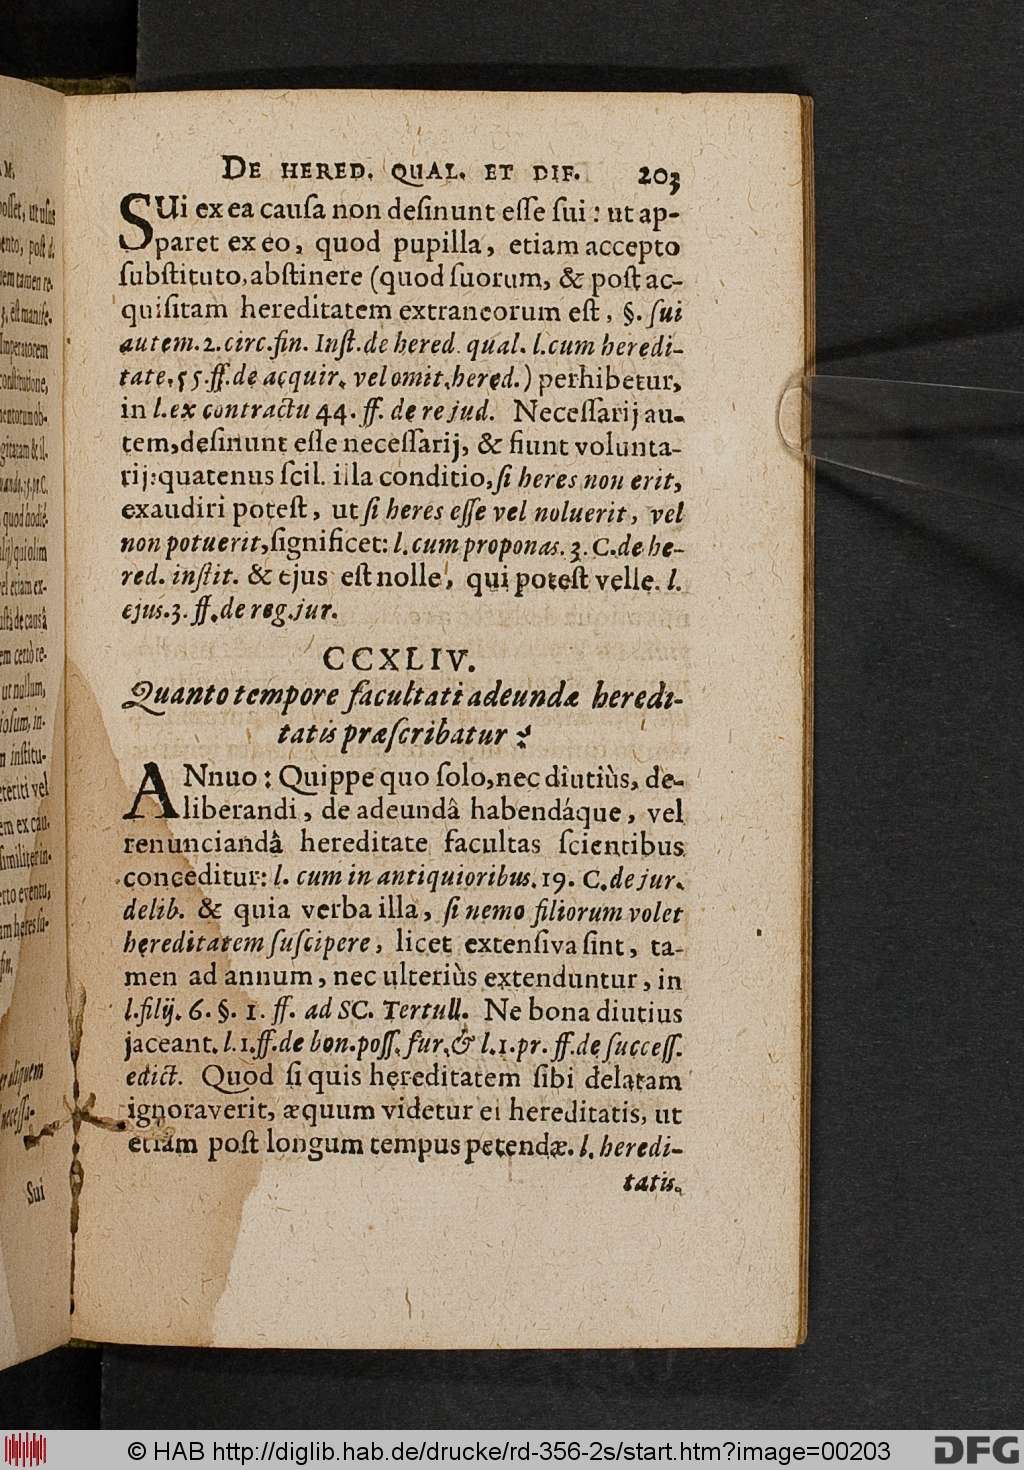 DE HERED. QUAL. ET DIF. 203
SUi ex ea cauſa non deſinunt eſſe ſui : ut ap-
paret ex eo, quod pupilla, etiam accepto
ſubſtituto, abſtinere (quod ſuorum, & poſt ac-
quiſitam hereditatem extraneorum eſt, §. ſui
autem. 2. circ. fin. Inſt. de hered. qual. l. cum heredi-
tate. 55. ff. de acquir. vel omit. hered.) perhibetur,
in l. ex contractu 44. ff. de re jud. Neceſſarij au-
tem, deſinunt eſſe neceſſarij, & fiunt volunta-
rij: quatenus ſcil. illa conditio, ſi heres non erit,
exaudiri poteſt, ut ſi heres eſſe vel noluerit, vel
non potuerit, ſignificet: l. cum proponas. 3. C. de he-
red. inſtit. & ejus eſt nolle, qui poteſt velle. l.
ejus. 3. ff. de reg. jur.
CCXLIV.
Quanto tempore facultati adeundæ heredi-
tatis præſcribatur ?
ANnuo : Quippe quo ſolo, nec diutiùs, de-
liberandi, de adeundâ habendáque, vel
renunciandâ hereditate facultas ſcientibus
conceditur: l. cum in antiquioribus. 19. C. de jur.
delib. & quia verba illa, ſi nemo filiorum volet
hereditatem ſuſcipere, licet extenſiva ſint, ta-
men ad annum, nec ulteriùs extenduntur, in
l. filij. 6. §. 1. ff. ad SC. Tertull. Ne bona diutius
jaceant. l. 1. ff. de bon. poſſ. fur. & l. 1. pr. ff. de ſucceſſ.
edict. Quod ſi quis hereditatem ſibi delatam
ignoraverit, æquum videtur ei hereditatis, ut
etiam poſt longum tempus petendæ. l. heredi-
tatis.
Sui
© HAB http://diglib.hab.de/drucke/rd-356-2s/start.htm?image=00203
DFG